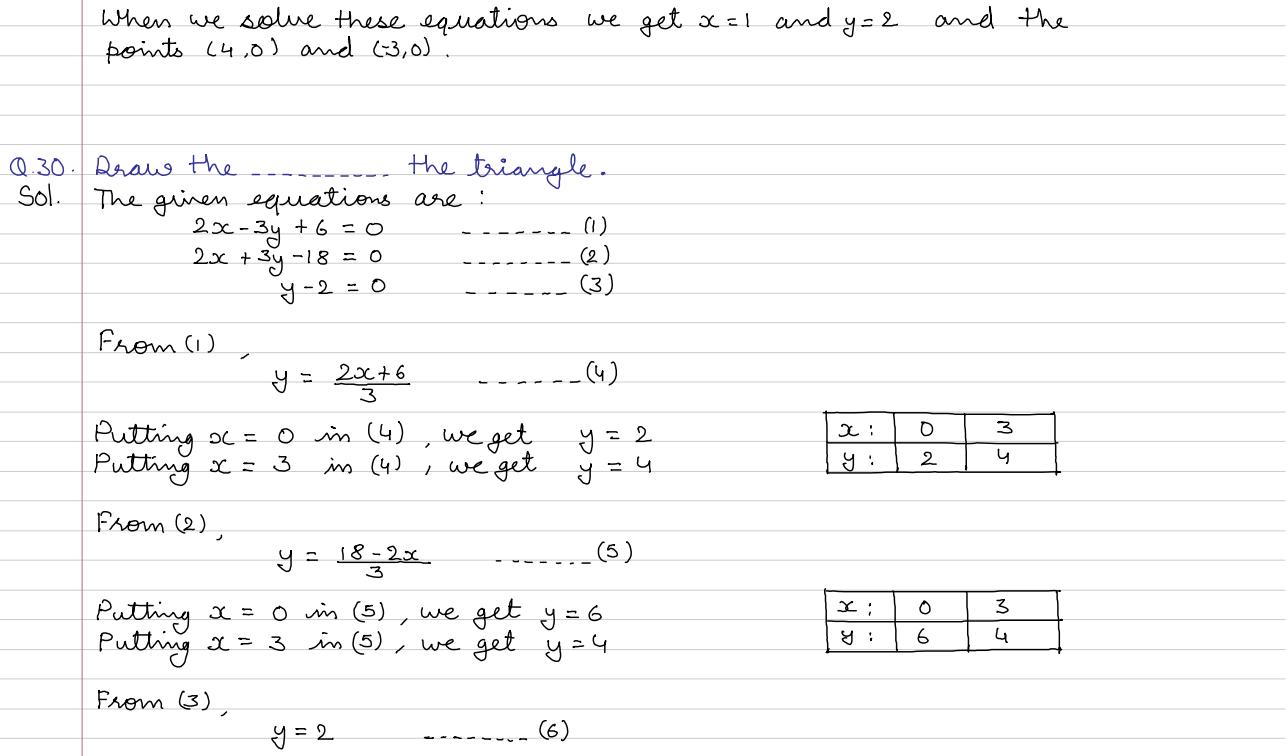 When we solve these equations we get x = 1 and y = 2 and the
points (4,0) and (-3,0).
Q.30. Draw the ---------- the triangle.
Sol. The given equations are :
2x - 3y + 6 = 0 ------- (1)
2x + 3y - 18 = 0 -------- (2)
y - 2 = 0 ------ (3)
From (1) ,
y = (2x+6)/3 ------ (4)
Putting x = 0 in (4) , we get y = 2
Putting x = 3 in (4) , we get y = 4
x : 0 3
y : 2 4
From (2) ,
y = (18 - 2x)/3 ------- (5)
Putting x = 0 in (5) , we get y = 6
Putting x = 3 in (5) , we get y = 4
x : 0 3
y : 6 4
From (3) ,
y = 2 -------- (6)